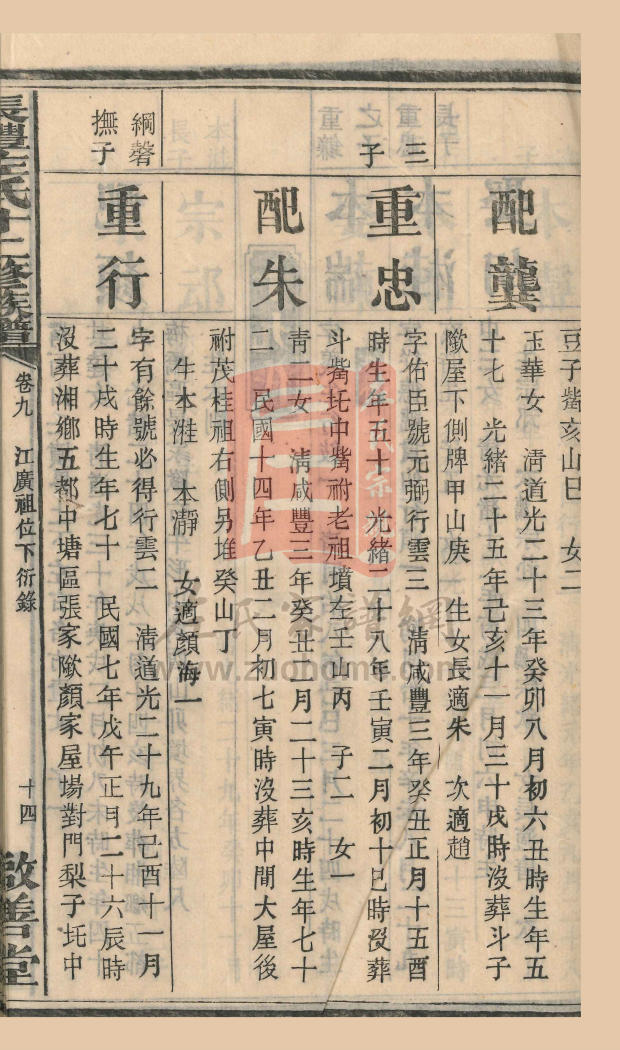 豆子觜亥山巳 女二
配龔
玉華女 淸道光二十三年癸卯八月初六丑時生年五
十七 光緖二十五年己亥十一月三十戌時沒葬斗子
歐屋下側牌甲山庚 生女長適朱 次適趙
三子
重忠
字佑臣號元弼行雲三 淸咸豐三年癸丑正月十五酉
時生年五十 光緖二十八年壬寅二月初十巳時沒葬
斗觜圫中觜祔老祖墳左壬山丙 子二 女一
配朱
靑二女 淸咸豐三年癸丑二月二十三亥時生年七十
二 民國十四年乙丑二月初七寅時沒葬中間大屋後
祔茂桂祖右側另堆癸山丁
生本溎 本瀞 女適顏海一
綱磬
撫子
重行
字有餘號必得行雲二 淸道光二十九年己酉十一月
二十戌時生年七十 民國七年戊午正月二十六辰時
沒葬湘鄕五都中塘區張家歐顏家屋場對門梨子圫中
氏十二修族譜
卷九 江廣祖位下衍錄
十四
啟善堂
左氏家譜網
www.zuohome.com